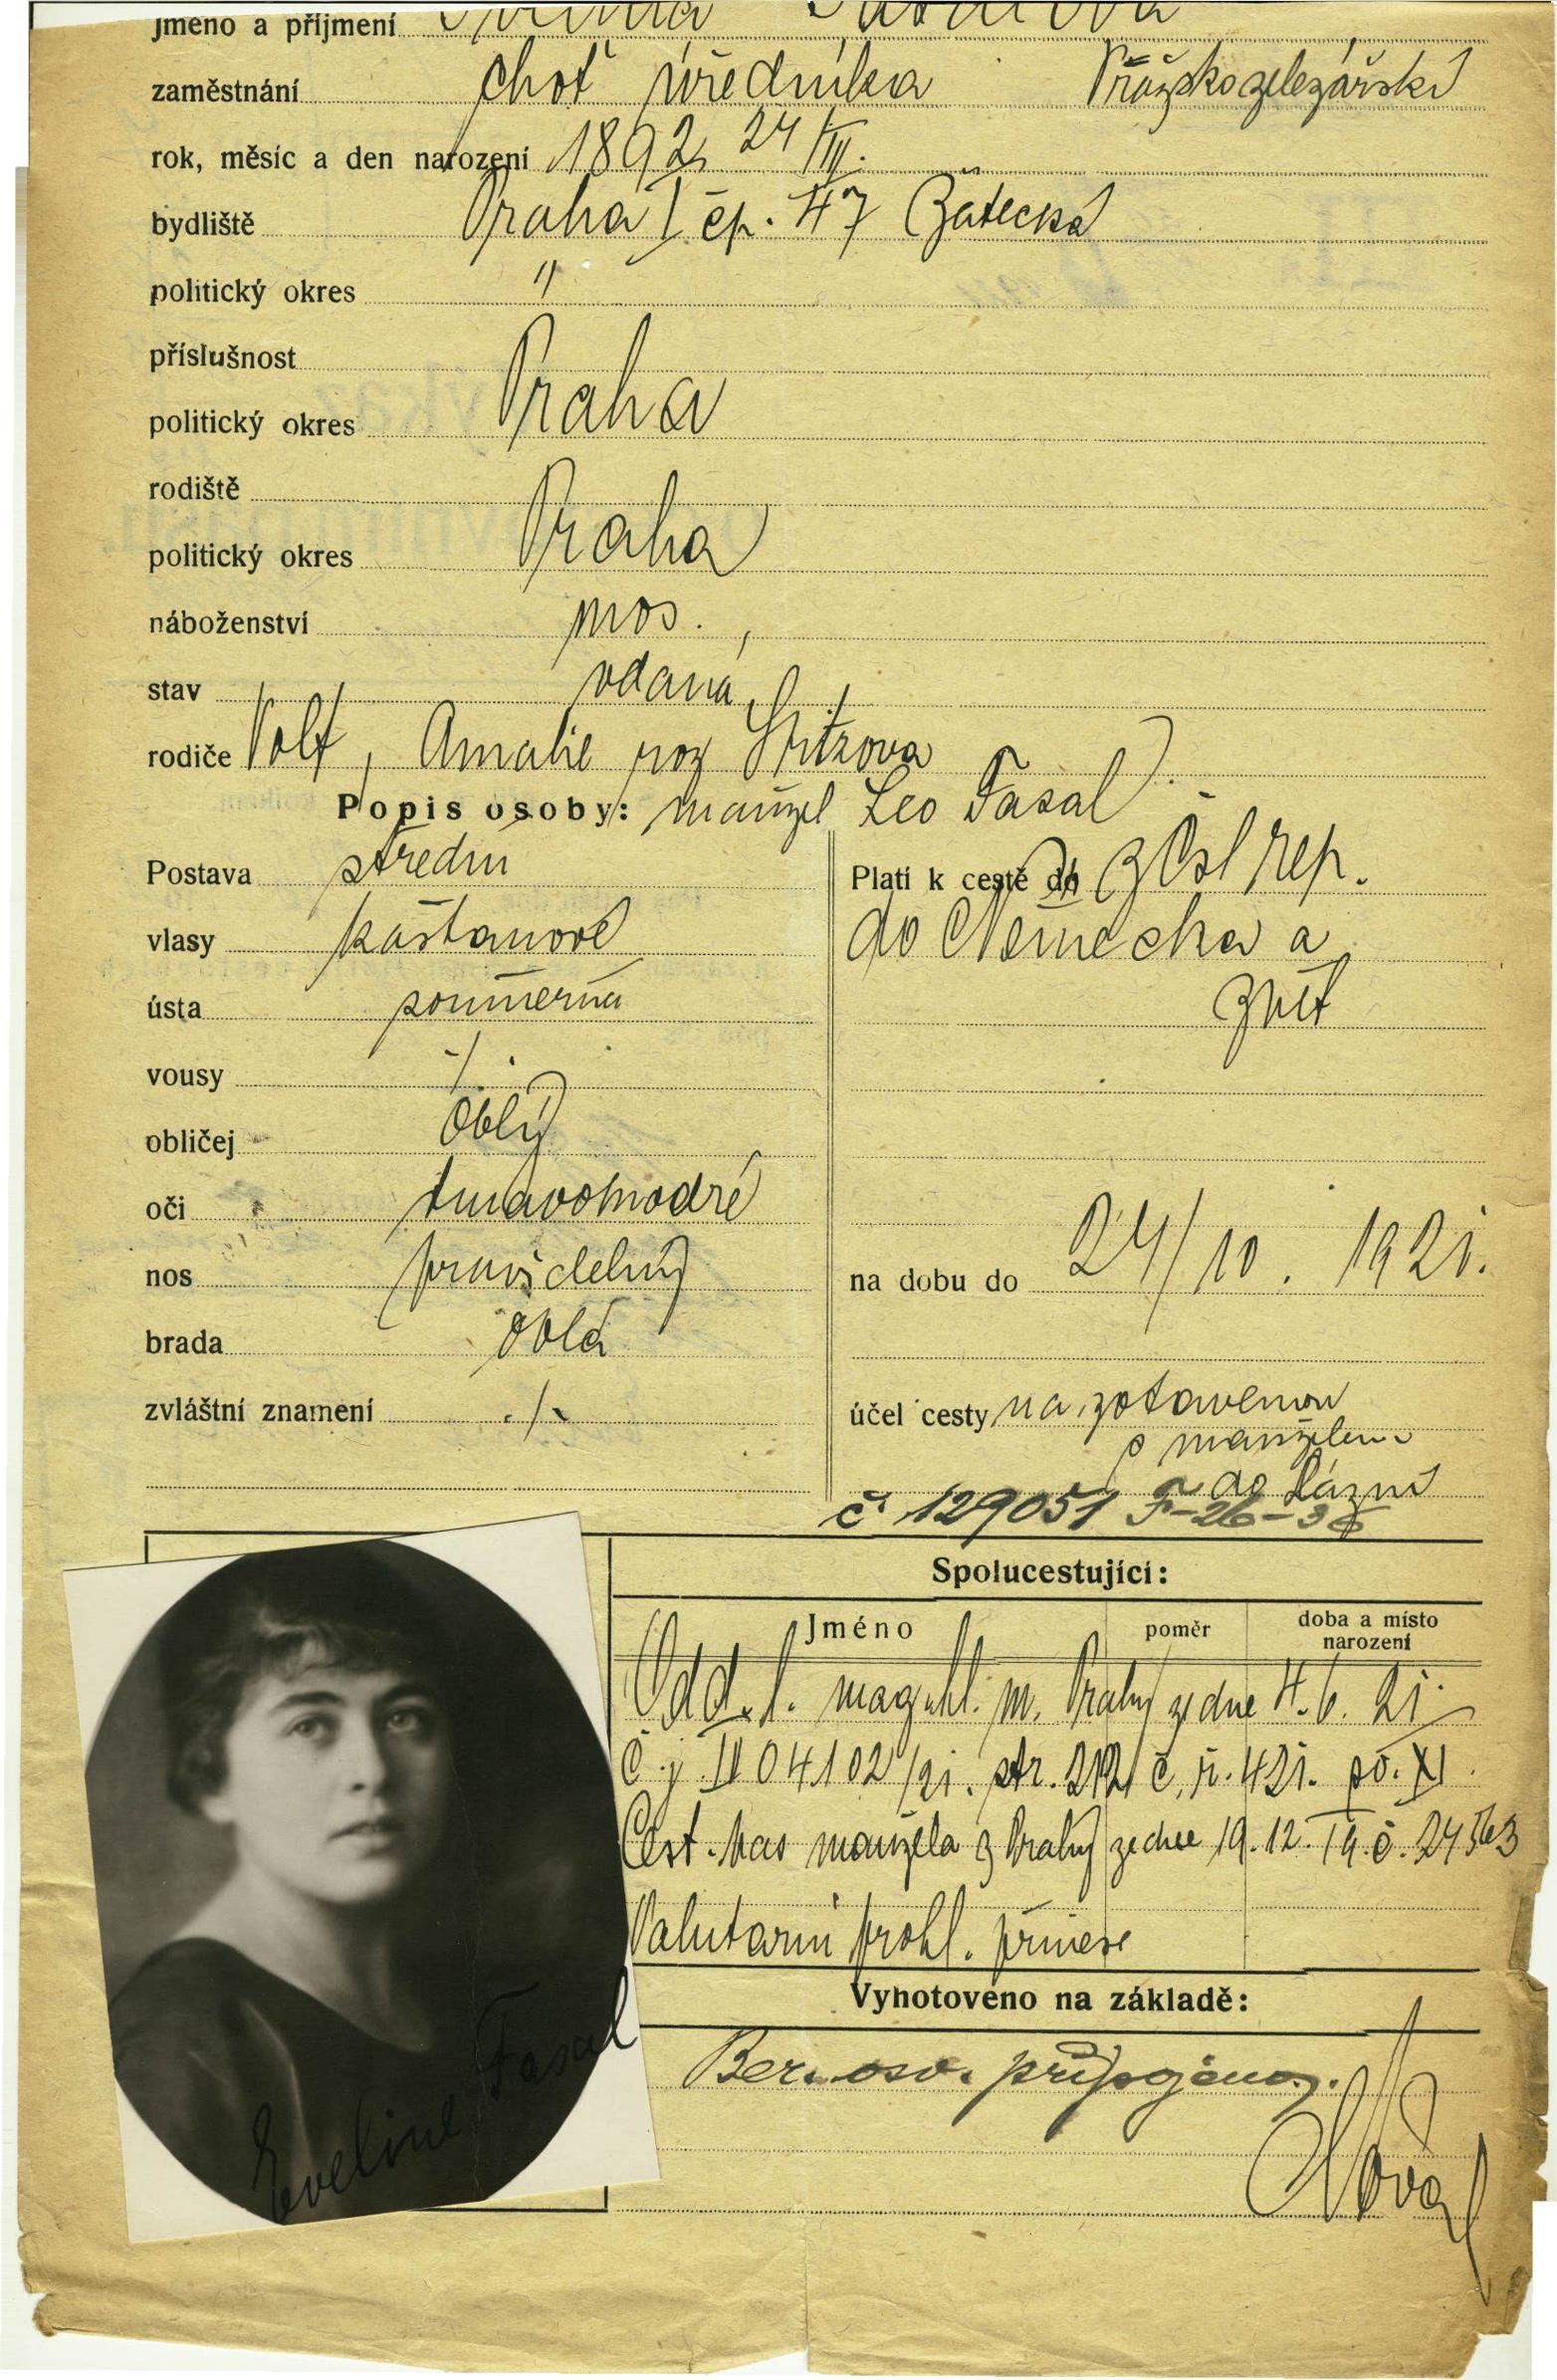 jméno a příjmení
zaměstnání choť úředníka Pražskoželezářské
rok, měsíc a den narození 1892 24/III.
bydliště Praha I čp. 47 Žatecká
politický okres "
příslušnost
politický okres Praha
rodiště
politický okres Praha
náboženství mos.
stav vdaná
rodiče Volf, Amalie roz
Popis osoby: manžel Leo Fasal
Postava střední
vlasy kaštanové
ústa souměrná
vousy ./.
obličej oblý
oči tmavomodré
nos pravidelný
brada oblá
zvláštní znamení ./.
Platí k cestě z Čsl rep.
do Německa a
zpět
na dobu do 24/10. 1921.
účel cesty na zotavenou
s manželem
do lázní
č. 129051 F-26-36
Spolucestující:
Jméno poměr doba a místo narození
Odd. l. mag. hl. m. Prahy ze dne 4.6. 21
č. j. IV 04102/21. str. 212 č. ř. 421. po. XI.
Cest. pas manžela z Prahy ze dne 19. 12. 19. č. 24563
Valutární prohl. přinese
Vyhotoveno na základě:
Ber. osv. připojeno.
Novák
Eveline Fasal